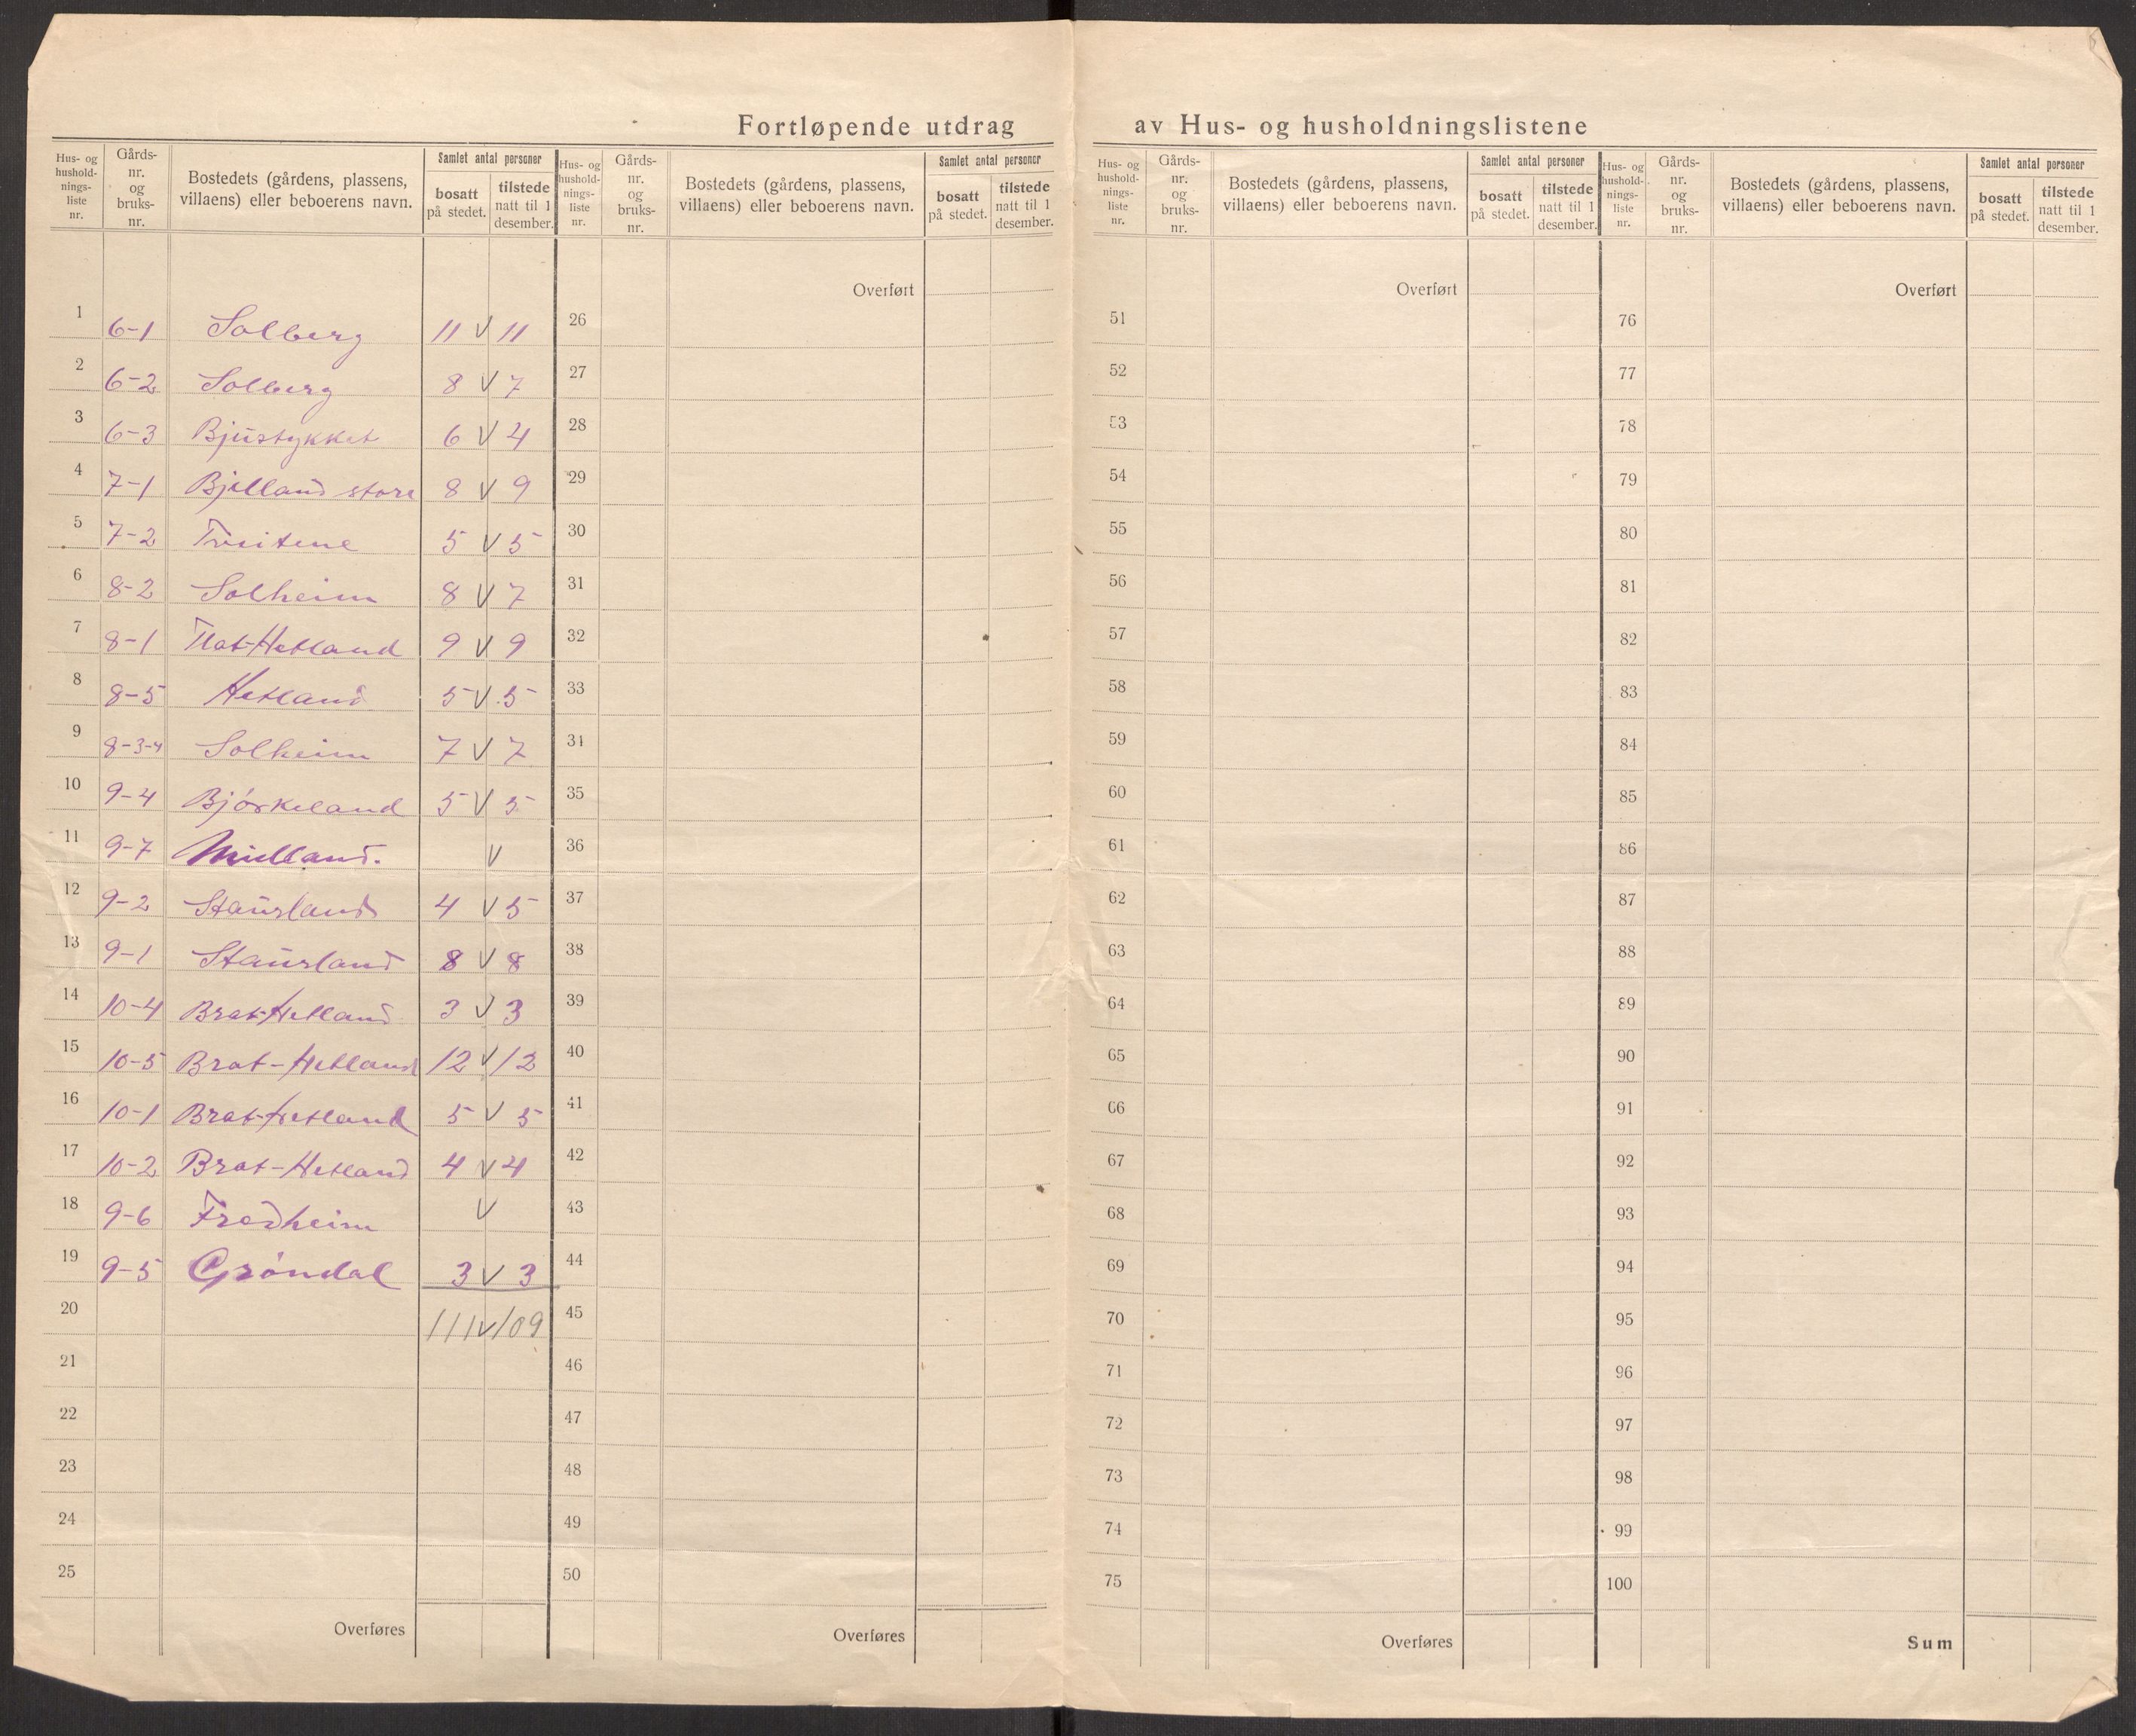 Fortløpende utdrag av Hus- og husholdningslistene
Hus- og hushold- nings- liste nr. | Gårds- nr. og bruks- nr. | Bostedets (gårdens, plassens, villaens) eller beboerens navn. | Samlet antal personer | bosatt på stedet. | tilstede natt til 1 desember.
Hus- og hushold- nings- liste nr. | Gårds- nr. og bruks- nr. | Bostedets (gårdens, plassens, villaens) eller beboerens navn. | Samlet antal personer | bosatt på stedet. | tilstede natt til 1 desember.
Hus- og hushold- nings- liste nr. | Gårds- nr. og bruks- nr. | Bostedets (gårdens, plassens, villaens) eller beboerens navn. | Samlet antal personer | bosatt på stedet. | tilstede natt til 1 desember.
Hus- og hushold- nings- liste nr. | Gårds- nr. og bruks- nr. | Bostedets (gårdens, plassens, villaens) eller beboerens navn. | Samlet antal personer | bosatt på stedet. | tilstede natt til 1 desember.
1 6-1 Solberg 11 V 11
2 6-2 Solberg 8 V 7
3 6-3 Bjustykket 6 V 4
4 7-1 Bjelland store 8 V 9
5 7-2 Tveitene 5 V 5
6 8-2 Solheim 8 V 7
7 8-1 Flat-Hetland 9 V 9
8 8-5 Hetland 5 V 5
9 8-3-4 Solheim 7 V 7
10 9-4 Bjórkeland 5 V 5
11 9-7 Midland. V
12 9-2 Staurland 4 V 5
13 9-1 Staurland 8 V 8
14 10-4 Brat-Hetland 3 V 3
15 10-5 Brat-Hetland 12 V 12
16 10-1 Brat-Hetland 5 V 5
17 10-2 Brat-Hetland 4 V 4
18 9-6 Fredheim V
19 9-5 Gróndal 3 V 3
20 111 V 109
21
22
23
24
25
Overføres
Overført
26
27
28
29
30
31
32
33
34
35
36
37
38
39
40
41
42
43
44
45
46
47
48
49
50
Overføres
Overført
51
52
53
54
55
56
57
58
59
60
61
62
63
64
65
66
67
68
69
70
71
72
73
74
75
Overføres
Overført
76
77
78
79
80
81
82
83
84
85
86
87
88
89
90
91
92
93
94
95
96
97
98
99
100
Sum